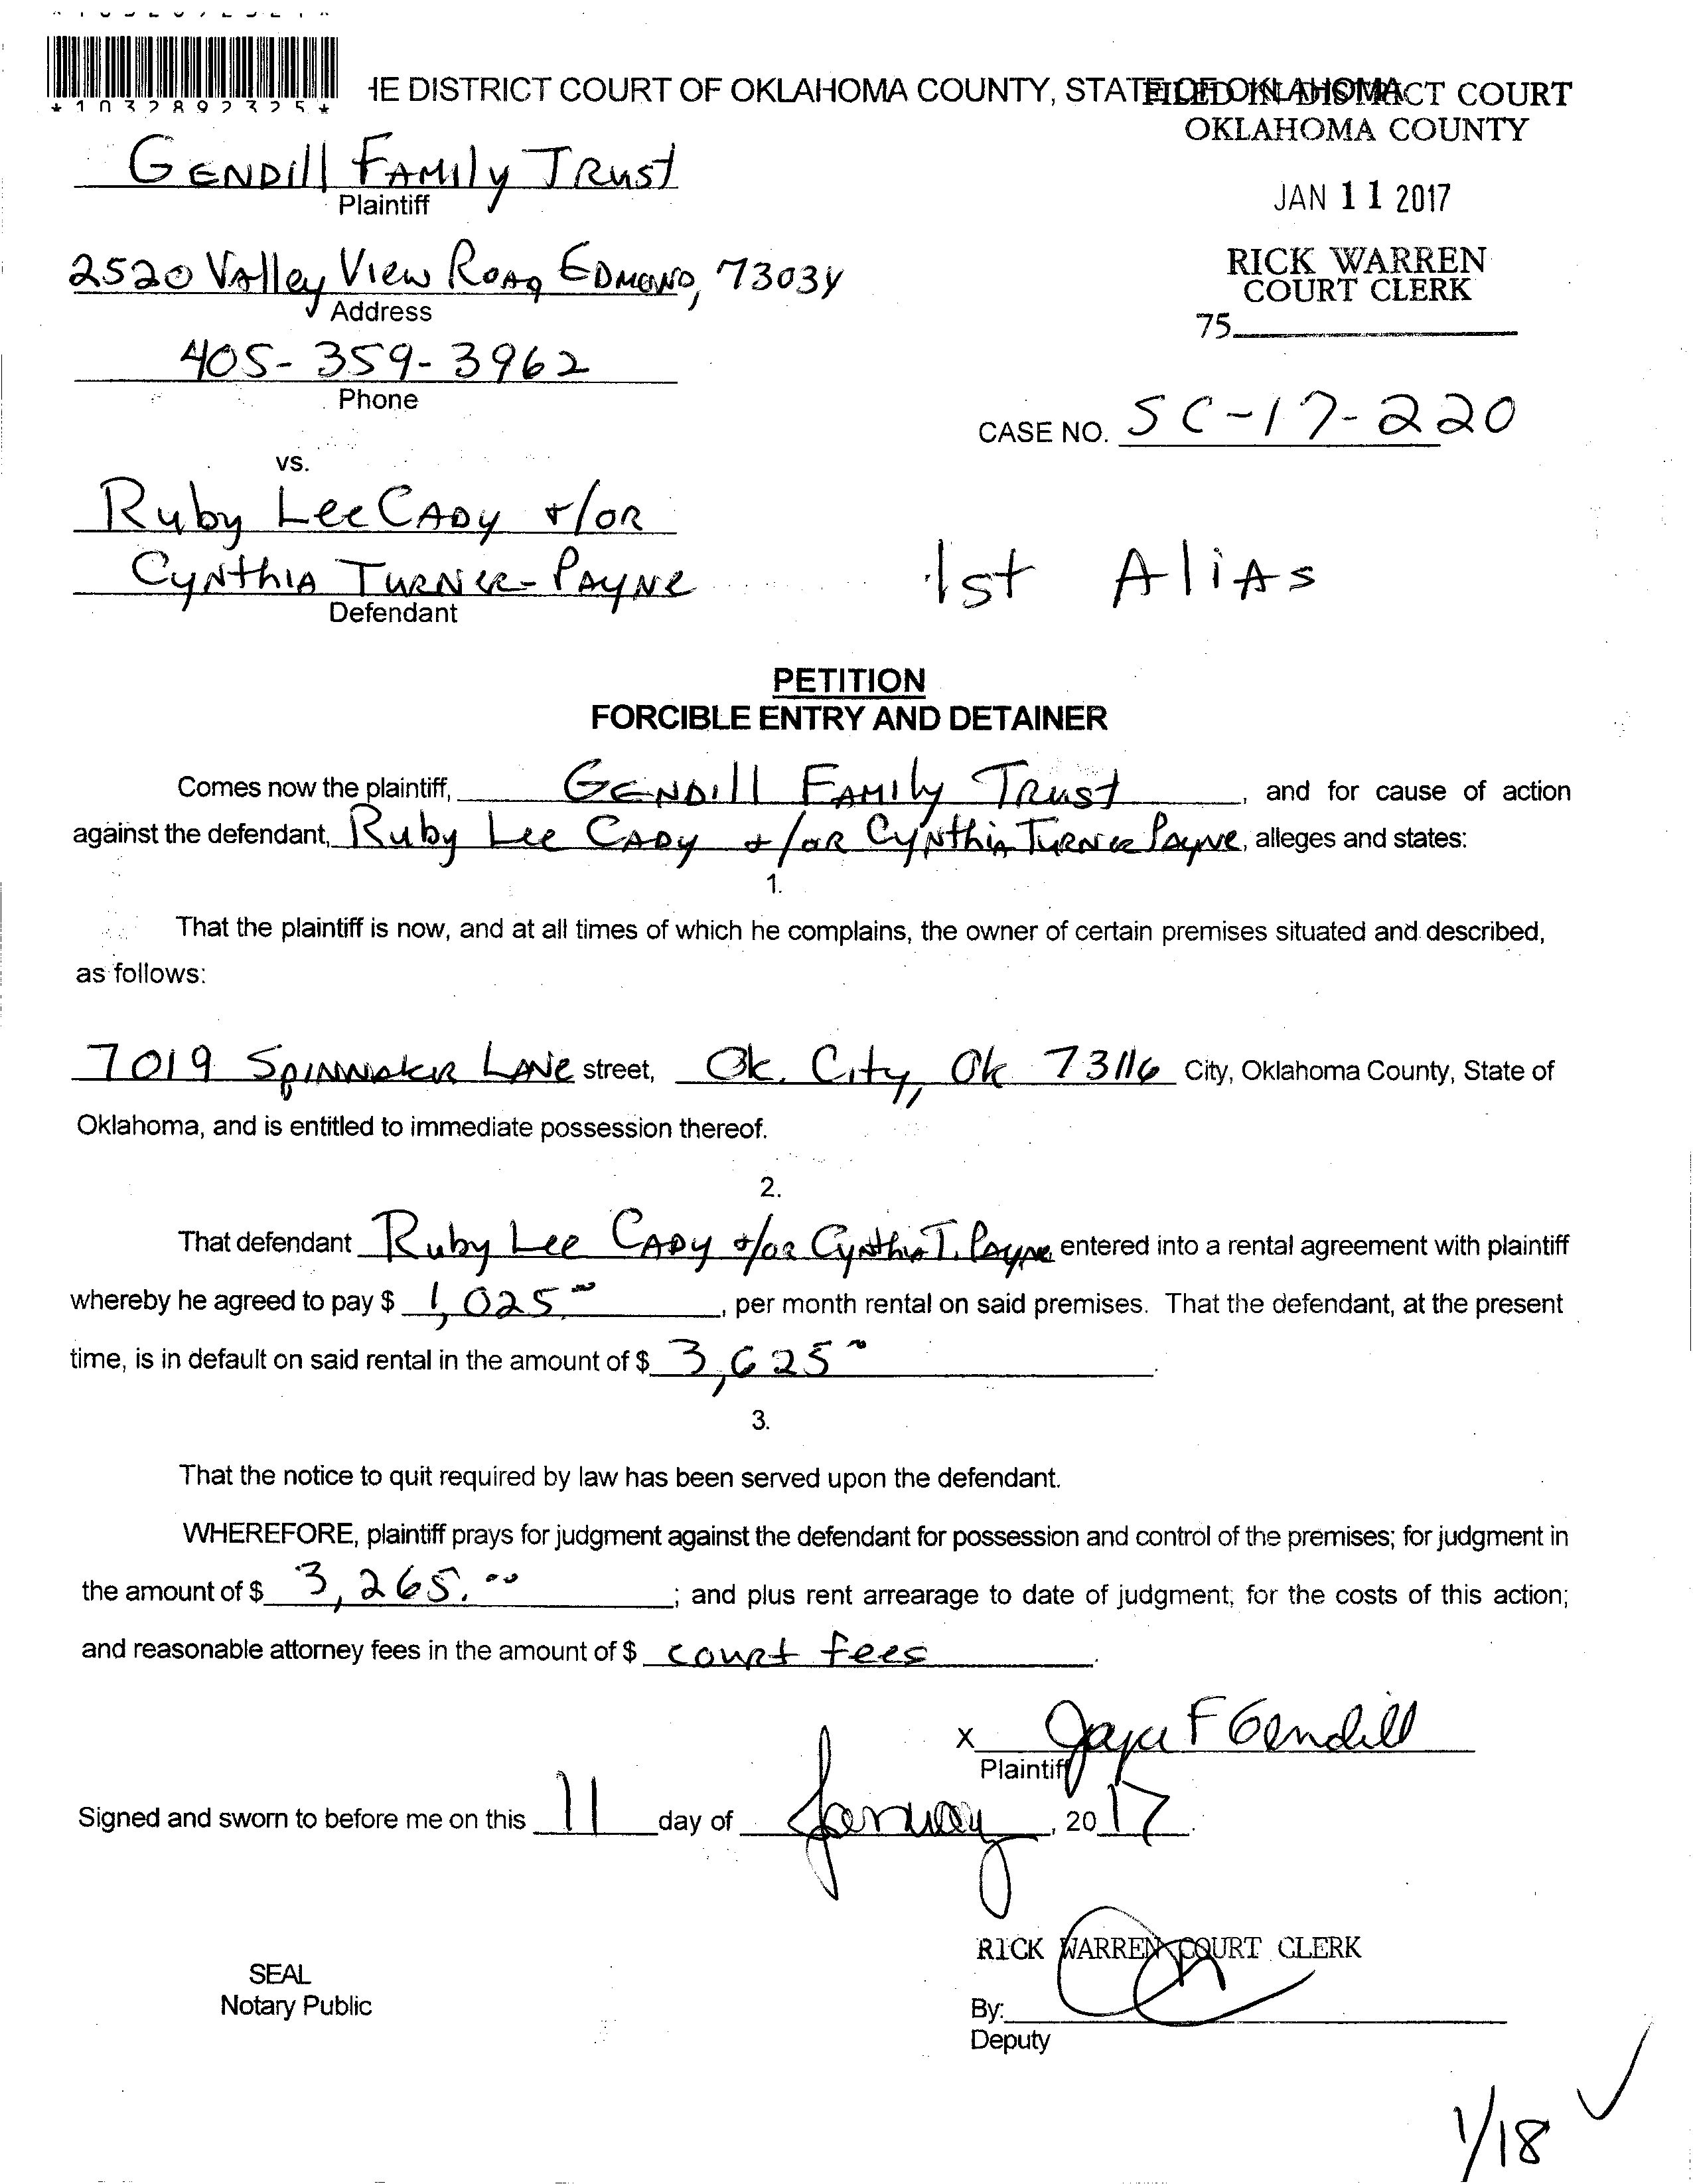 *1032892325*
HE DISTRICT COURT OF OKLAHOMA COUNTY, STATE OF OKLAHOMA
FILED IN DISTRICT COURT
OKLAHOMA COUNTY
GENDill FAMily TRust
Plaintiff
JAN 11 2017
2520 Valley View Road EDMOND, 73034
Address
RICK WARREN
COURT CLERK
75
405-359-3962
Phone
CASE NO. SC-17-220
vs.
Ruby Lee CADy +/OR
CyNthiA TURNER-PAyNe
Defendant
1st AliAs
PETITION
FORCIBLE ENTRY AND DETAINER
Comes now the plaintiff, GENDill FAMily TRust, and for cause of action
against the defendant, Ruby Lee CADy +/OR CyNthiA TURNER PAyNe, alleges and states:
1.
That the plaintiff is now, and at all times of which he complains, the owner of certain premises situated and described,
as follows:
7019 SpiNNAkeR LANe street, Ok. City, Ok 73116 City, Oklahoma County, State of
Oklahoma, and is entitled to immediate possession thereof.
2.
That defendant Ruby Lee CADy +/OR CyNthiA T. PAyNe entered into a rental agreement with plaintiff
whereby he agreed to pay $ 1,025.00, per month rental on said premises. That the defendant, at the present
time, is in default on said rental in the amount of $ 3,625.00.
3.
That the notice to quit required by law has been served upon the defendant.
WHEREFORE, plaintiff prays for judgment against the defendant for possession and control of the premises; for judgment in
the amount of $ 3,265.00; and plus rent arrearage to date of judgment; for the costs of this action;
and reasonable attorney fees in the amount of $ court fees.
X F Gendill
Plaintiff
Signed and sworn to before me on this 11 day of January, 2017.
RICK WARREN COURT CLERK
SEAL
Notary Public
By:
Deputy
1/18